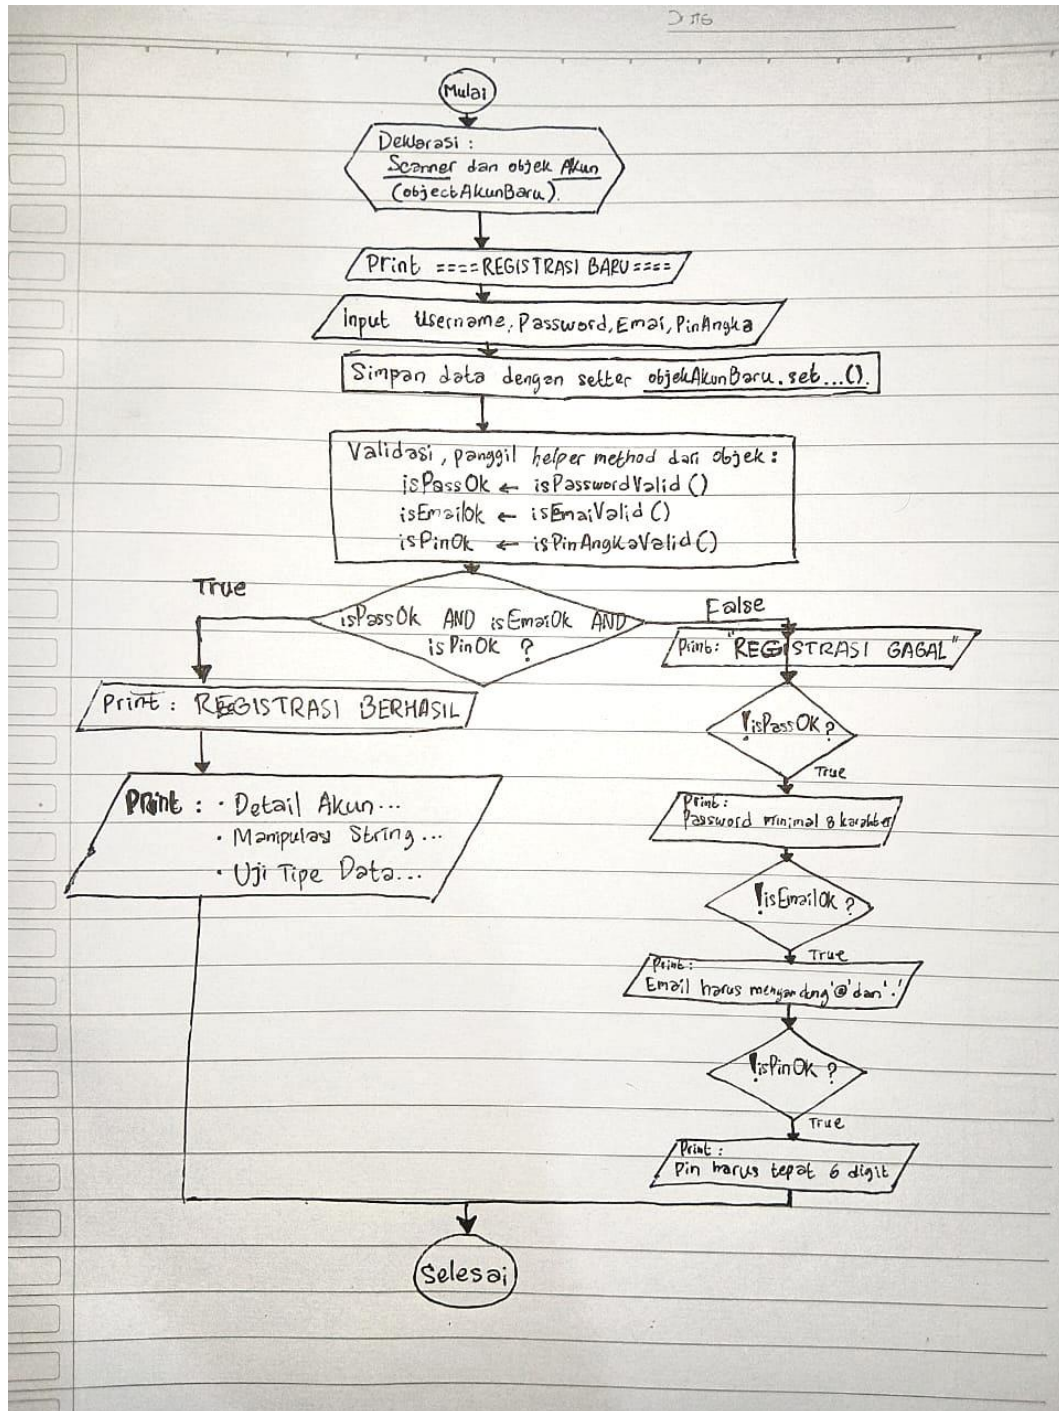 Mulai
Deklarasi :
Scanner dan objek Akun
(objectAkunBaru).
Print ====REGISTRASI BARU====
Input Username, Password, Emai, PinAngka
Simpan data dengan setter objekAkunBaru.set...().
Validasi, panggil helper method dari objek :
isPassOk ← isPasswordValid ()
isEmailOk ← isEmaiValid ()
isPinOk ← isPinAngkaValid ()
True
isPassOk AND isEmaiOk AND
isPinOk ?
False
Print: "REGISTRASI GAGAL"
Print : REGISTRASI BERHASIL
!isPassOK ?
True
Print : · Detail Akun...
· Manipulasi String...
· Uji Tipe Data...
Print :
Password minimal 8 karakter
!isEmailOk ?
True
Print :
Email harus mengandung '@' dan '.'
!isPinOk ?
True
Print :
Pin harus tepat 6 digit
Selesai